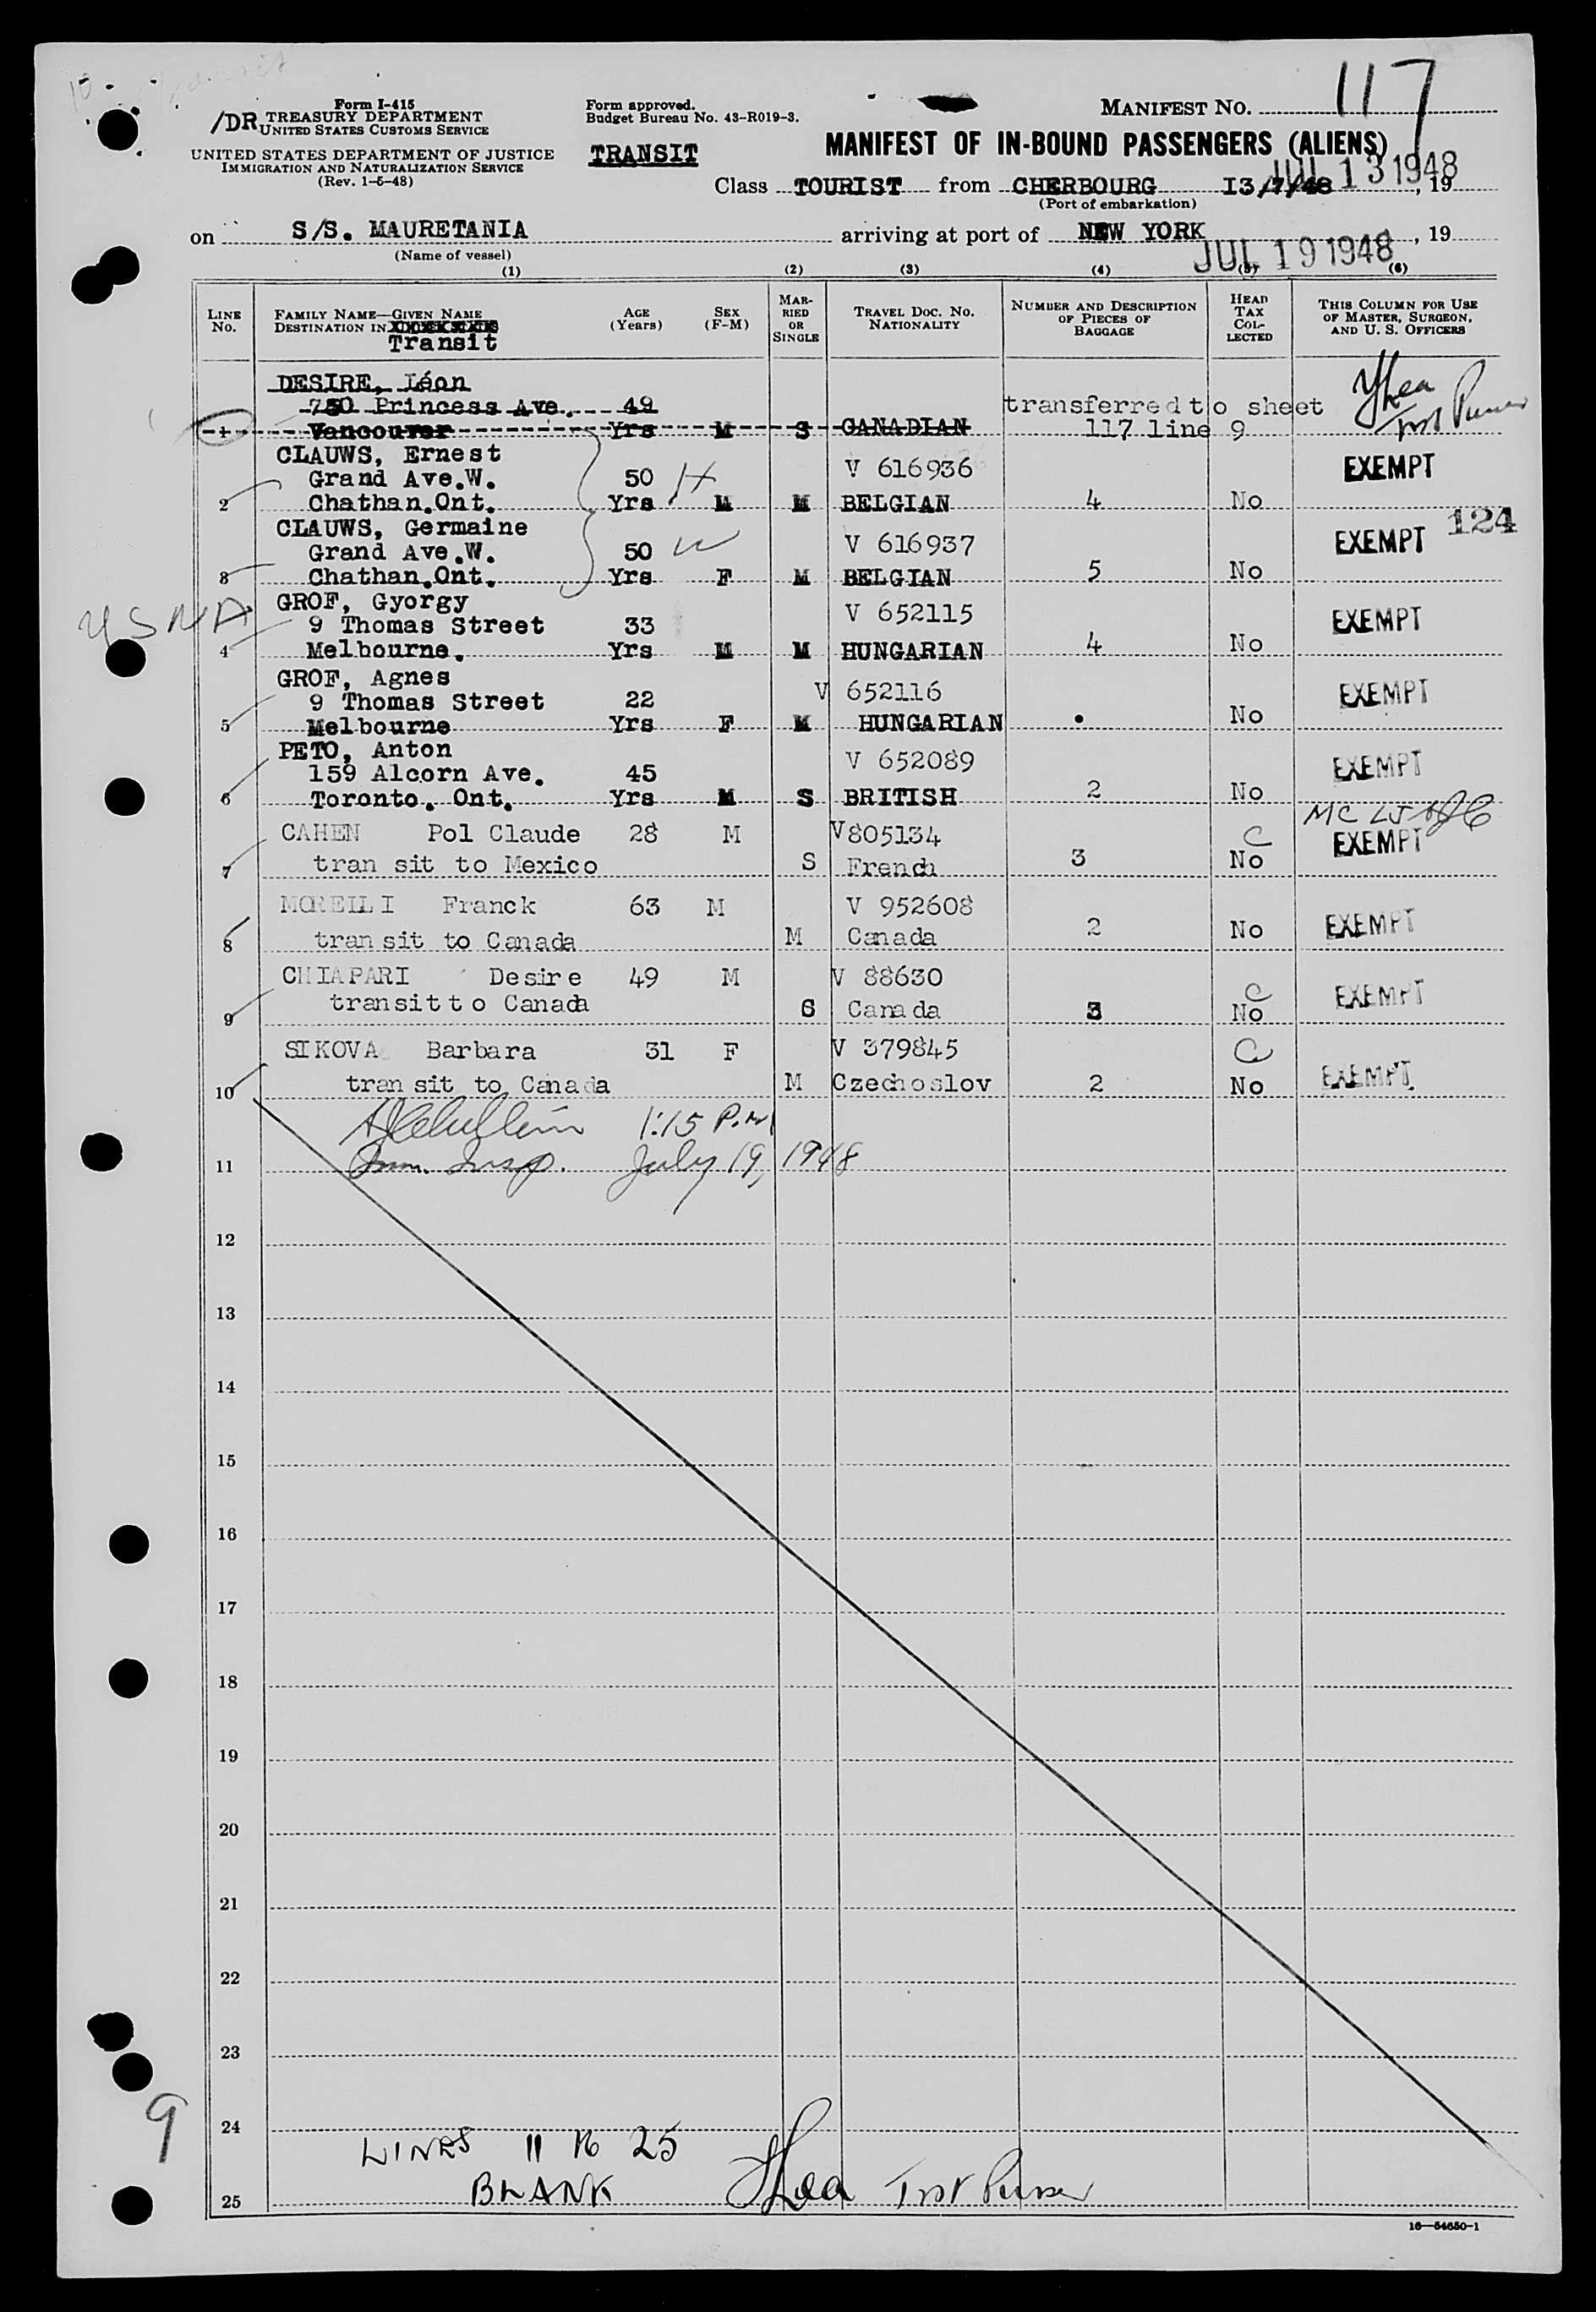 Form I-415
/DR TREASURY DEPARTMENT
UNITED STATES CUSTOMS SERVICE
UNITED STATES DEPARTMENT OF JUSTICE
IMMIGRATION AND NATURALIZATION SERVICE
(Rev. 1-5-48)
Form approved.
Budget Bureau No. 43-R019-3.
TRANSIT
MANIFEST NO. 117
MANIFEST OF IN-BOUND PASSENGERS (ALIENS)
JUL 13 1948
Class TOURIST from CHERBOURG 13/7/48, 19
(Port of embarkation)
on S/S. MAURETANIA arriving at port of NEW YORK, 19
JUL 19 1948
(Name of vessel)
(1) (2) (3) (4) (5) (6)
LINE NO.
FAMILY NAME—GIVEN NAME
DESTINATION IN
Transit
AGE (Years)
SEX (F-M)
MARRIED OR SINGLE
TRAVEL DOC. NO. NATIONALITY
NUMBER AND DESCRIPTION OF PIECES OF BAGGAGE
HEAD TAX COLLECTED
THIS COLUMN FOR USE OF MASTER, SURGEON, AND U. S. OFFICERS
DESIRE, Léon
750 Princess Ave. 49 transferred to sheet
1 Vancouver Yrs M S CANADIAN 117 line 9
CLAUWS, Ernest
Grand Ave.W. 50 H V 616936 EXEMPT
2 Chathan.Ont. Yrs M M BELGIAN 4 No
124
CLAUWS, Germaine
Grand Ave.W. 50 W V 616937 EXEMPT
3 Chathan.Ont. Yrs F M BELGIAN 5 No
GROF, Gyorgy
9 Thomas Street 33 V 652115 EXEMPT
4 Melbourne. Yrs M M HUNGARIAN 4 No
GROF, Agnes
9 Thomas Street 22 V 652116 EXEMPT
5 Melbourne Yrs F M HUNGARIAN . No
PETO, Anton
159 Alcorn Ave. 45 V 652089 EXEMPT
6 Toronto. Ont. Yrs M S BRITISH 2 No
CAHEN Pol Claude 28 M V805134 C EXEMPT
7 tran sit to Mexico S French 3 No
MOREILLI Franck 63 M V 952608
8 tran sit to Canada M Canada 2 No EXEMPT
CHIAPARI Desire 49 M V 88630 C
9 transit to Canada S Canada 3 No EXEMPT
SIKOVA Barbara 31 F V 379845 C
10 tran sit to Canada M Czechoslov 2 No EXEMPT
1:15 P.M
11 Imm. Insp. July 19, 1948
12
13
14
15
16
17
18
19
20
21
22
23
9
24
LINES 11 TO 25
BLANK
25
16—54650-1